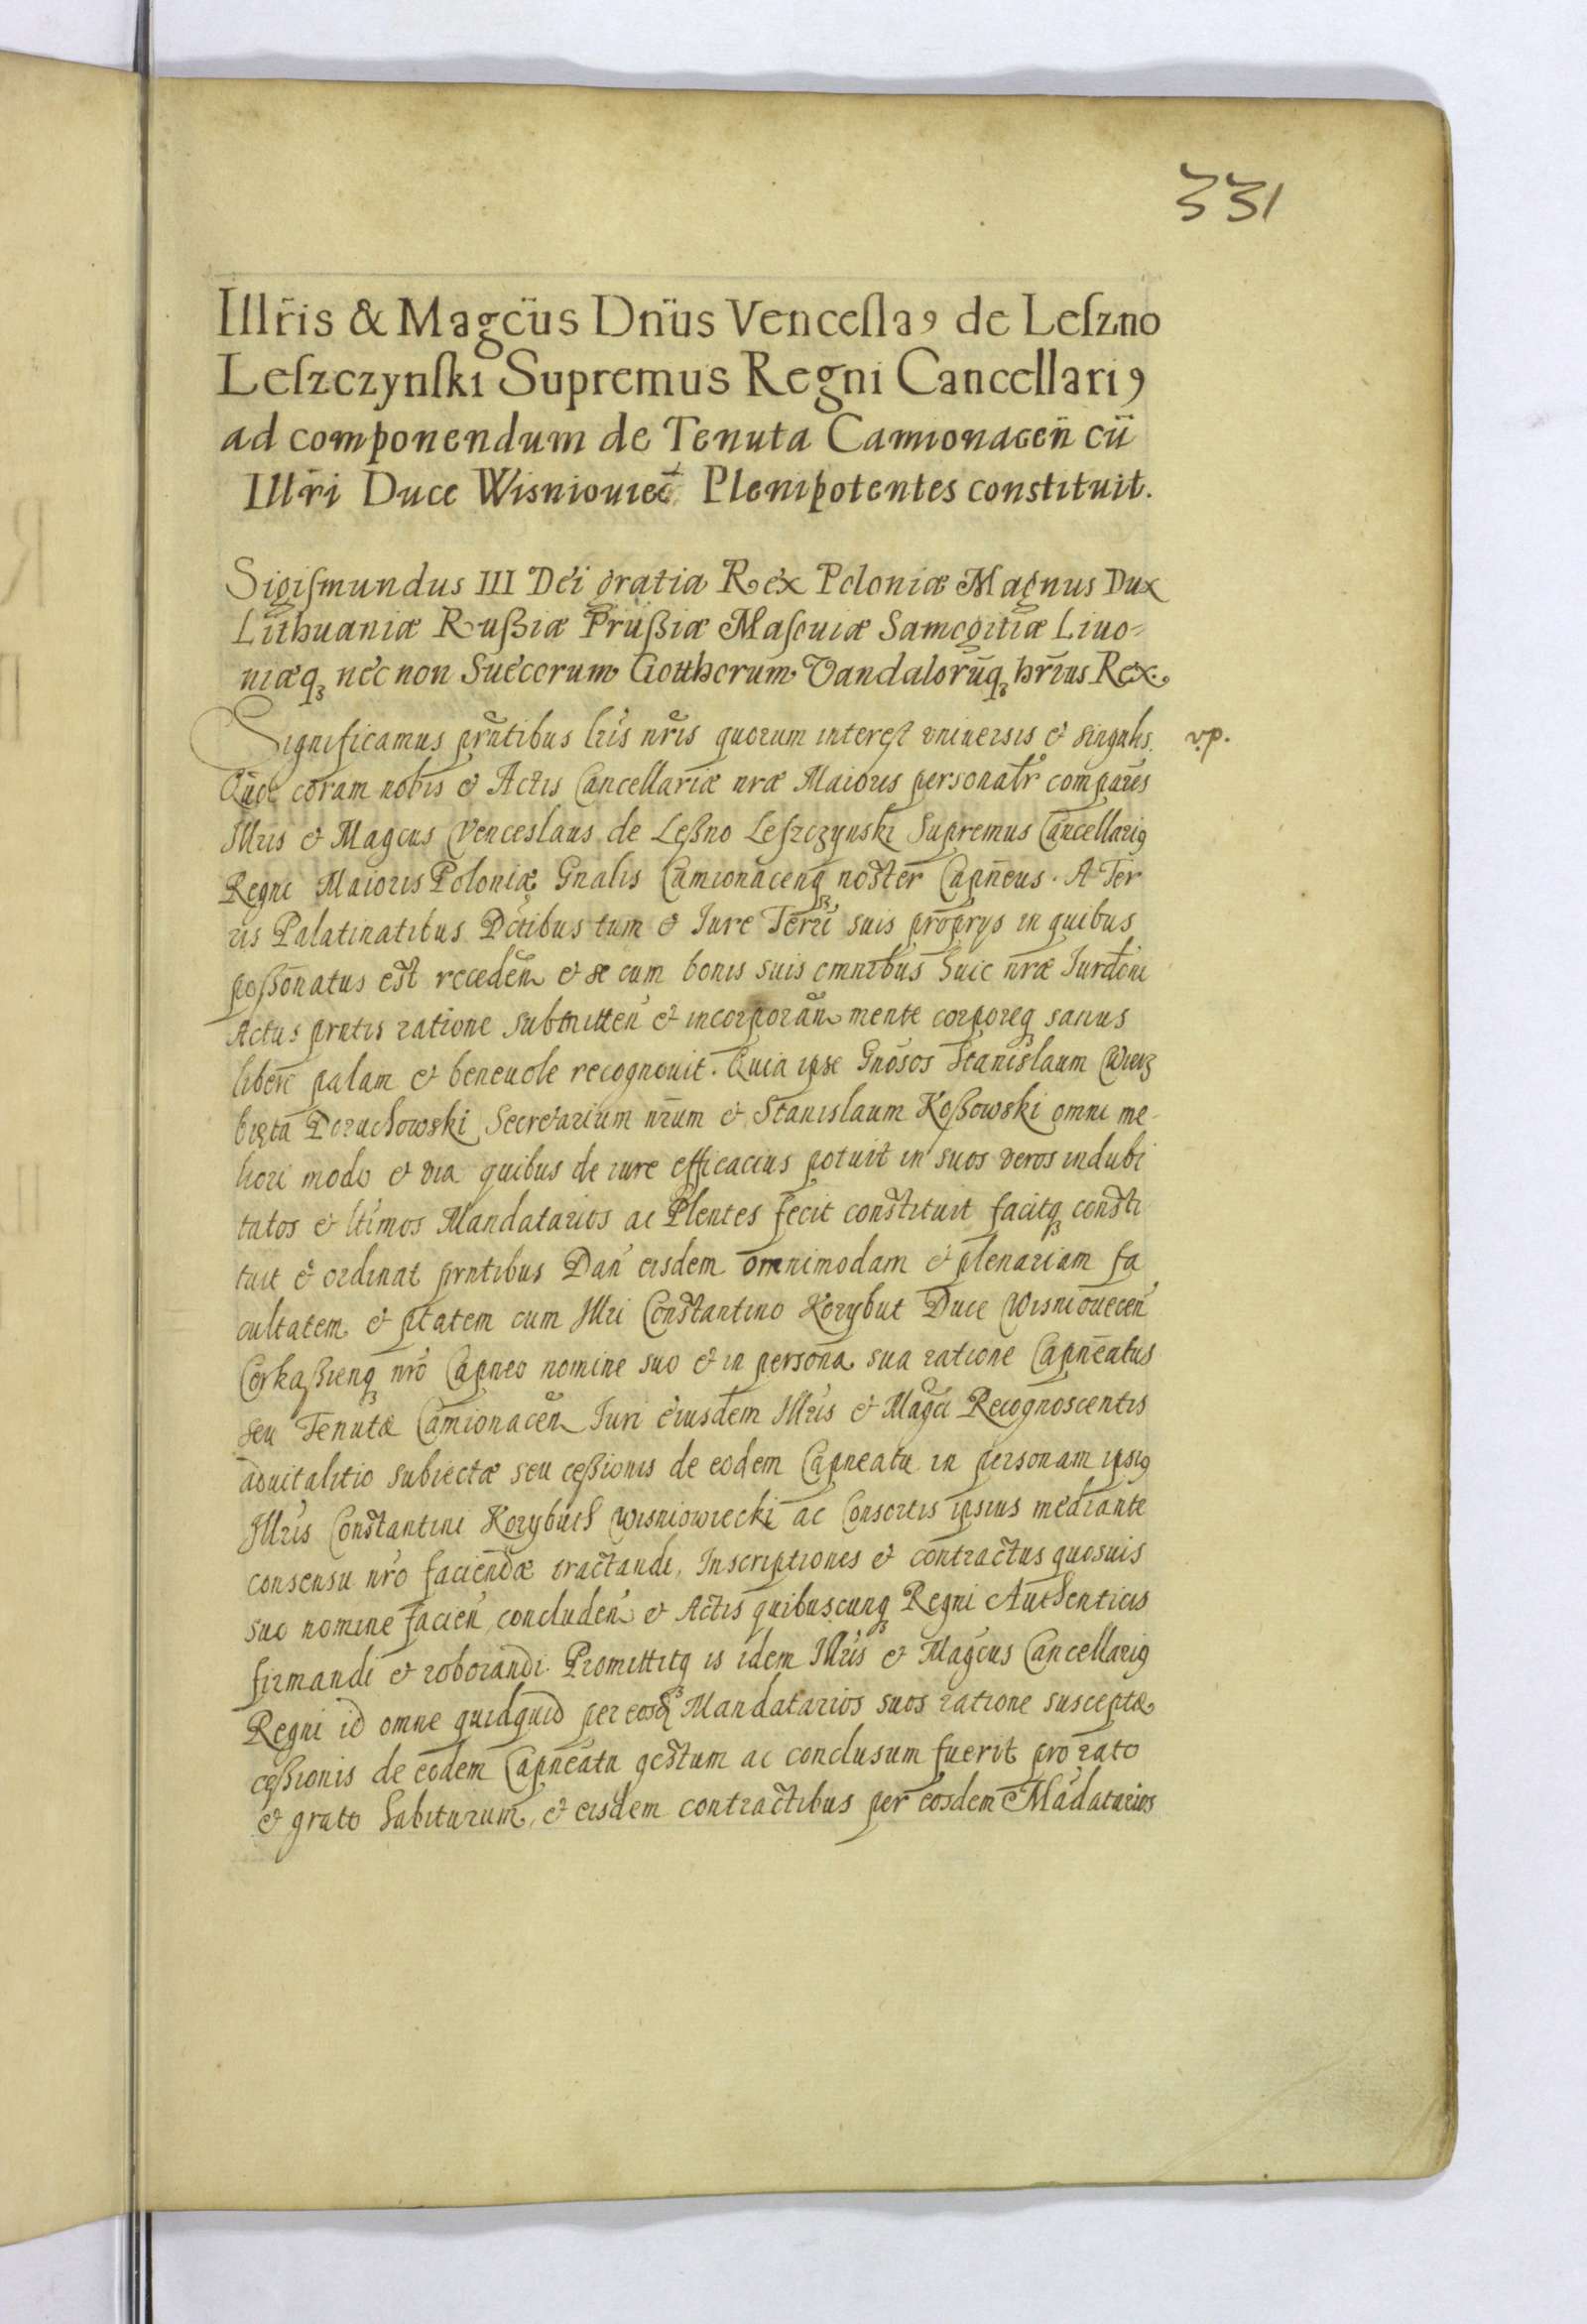 331
Illr̃is & Magcüs Dnüs Venceſlaꝰ de Leſzno
Leſzczynſki Supremus Regni Cancellariꝰ
ad componendum de Tenuta Camionaceñ cü
Illr̃i Duce Wisniouiec̃ Plenipotentes constituit.
Sigiſmundus III Dei gratia Rex Poloniæ Magnus Dux
Lithuaniæ Rußiæ Prußiæ Maſouiæ Samogitiæ Liuo-
niæq̧ nec non Suecorum Gotthorum Vandalorũq̧ hr̃ius Rex.
Significamus pr̃ntibus lr̃is nr̃is quorum interest vniuersis et singulis. v.p.
Quod coram nobis et Actis Cancellariæ nr̃æ Maioris personalr̃ compar̃es
Illr̃is et Magcus Venceslaus de Leßno Leſzczynski Supremus Cancellariꝰ
Regni Maioris Poloniæ Gnalis Camionacenq̧ noster Capñeus. A Ter
ris Palatinatibus Dctibus tum et Iure Terr̃i suis proprys in quibus
poßonatus est receden̄ et se cum bonis suis omnibus huic nr̃æ Iurdc̃ni
Actus pr̃ntis ratione submitten̄ et incorporan̄ mente corporeq̧ sanus
libere palam et beneuole recognouit. Quia ipse Gnosos Stanislaum Wierz
bięta Doruchowski Secretarium nr̃um et Stanislaum Koßowski omni me-
liori modo et via quibus de iure efficacius potuit in suos veros indubi
tatos et ltimos Mandatarios ac Plentes fecit constituit facitq̧ consti
tuit et ordinat pr̃ntibus Dan̄ eisdem omnimodam et plenariam fa
cultatem et ptatem cum Illr̃i Constantino Korybut Duce Wisniouecen̄
Cerkaßienq̧ nr̃o Capneo nomine suo et in persona sua ratione Capñeatus
seu Tenutæ Camionacen̄ Iuri eiusdem Illr̃is et Magci Recognoscentis
aduitalitio subiectæ seu ceßionis de eodem Capneatu in personam ipsiꝰ
Illr̃is Constantini Korybuth Wisniowiecki ac Consortis ipsius mediante
consensu nr̃o faciendæ tractandi, Inscriptiones et contractus quosuis
suo nomine facien̄ concluden̄ et Actis quibuscunq̧ Regni Authenticis
firmandi et roborandi. Promittitq̧ is idem Illr̃is et Magcus Cancellariꝰ
Regni id omne quidquid per eosd̃ Mandatarios suos ratione susceptæ
ceßionis de eodem Capñeatu gestum ac conclusum fuerit pro rato
et grato habiturum, et eisdem contractibus per eosdem Mãdatarios